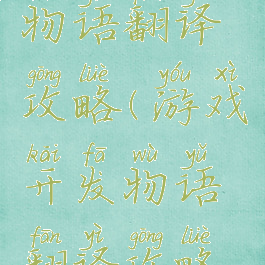 物语翻译
gōng lüè yóu xì
攻略(游戏
kāi fā wù yǔ
开发物语
fān yì gōng lüè
翻译攻略